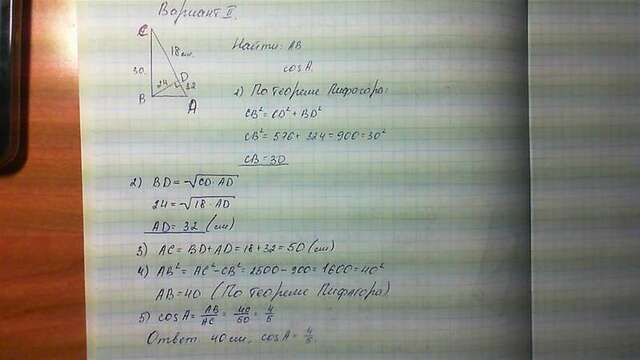 Вариант II.
C
18 см.
30.
24
D
32
B
A
Найти: AB
cos A.
1) По теореме Пифагора:
CB² = CD² + BD²
CB² = 576 + 324 = 900 = 30²
CB = 30
2) BD = √CD·AD
24 = √18·AD
AD = 32 (см)
3) AC = BD + AD = 18 + 32 = 50 (см)
4) AB² = AC² - CB² = 2500 - 900 = 1600 = 40²
AB = 40 (По теореме Пифагора)
5) cos A = AB/AC = 40/50 = 4/5
Ответ 40 см, cos A = 4/5.